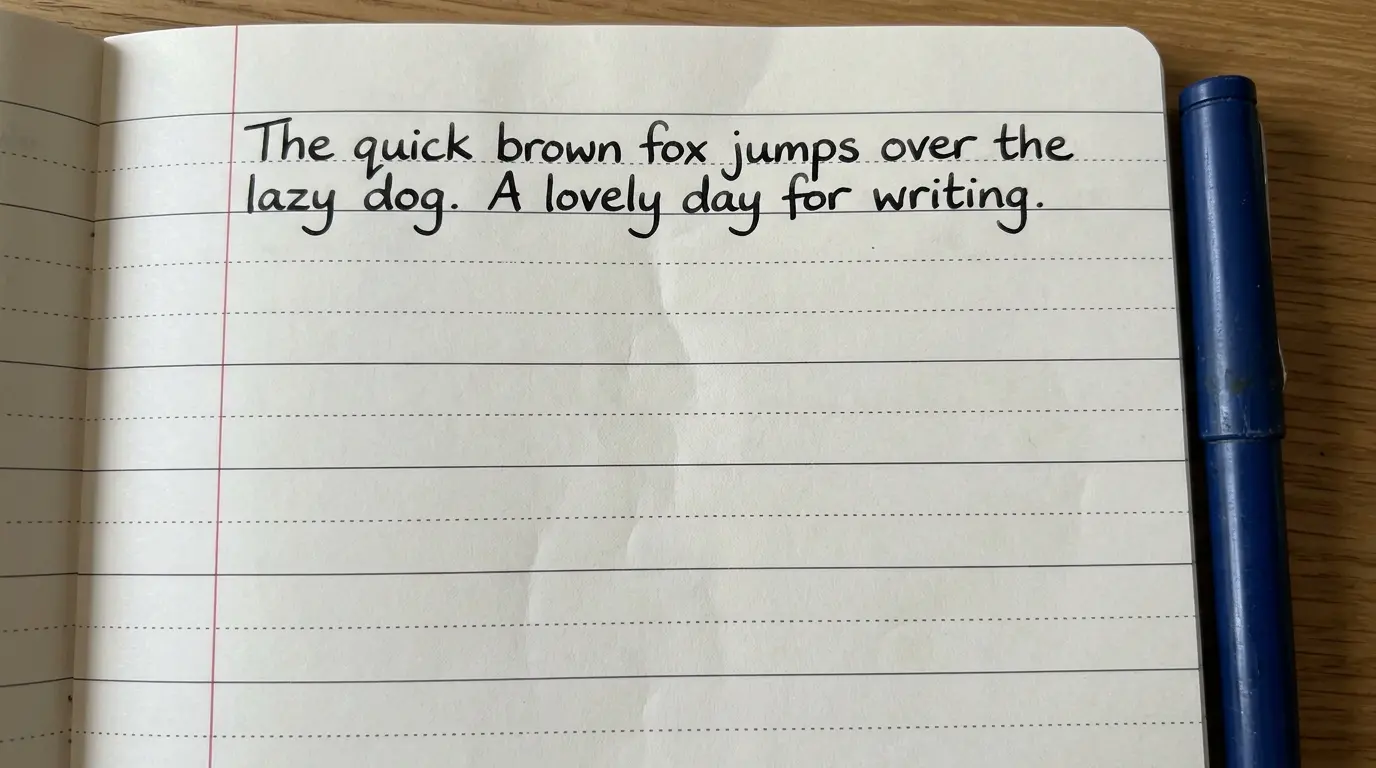 The quick brown fox jumps over the
lazy dog. A lovely day for writing.